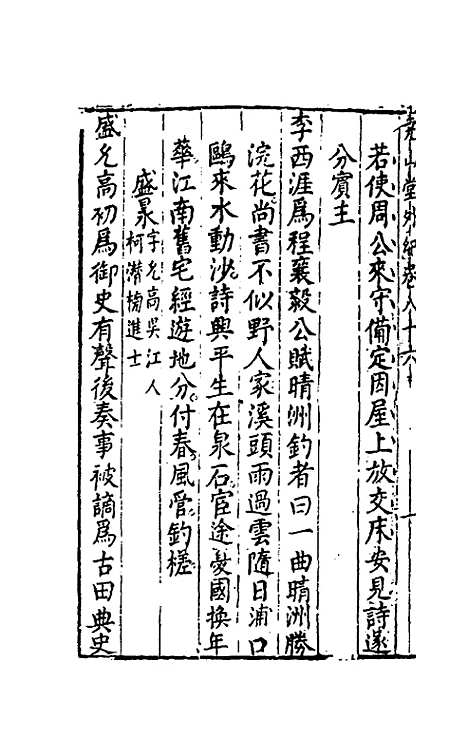 堯山堂外紀卷八十六
若使周公來守備定因屋上放交床安見詩遂
分賓主
李西涯爲程襄毅公賦晴洲釣者曰一曲晴洲勝
浣花尚書不似野人家溪頭雨過雲隨日浦口
鷗來水動沙詩興平生在泉石宦途憂國換年
華江南舊宅經遊地分付春風管釣槎
盛杲字允高吳江人
柯潛榜進士
盛允高初爲御史有聲後奏事被謫爲古田典史